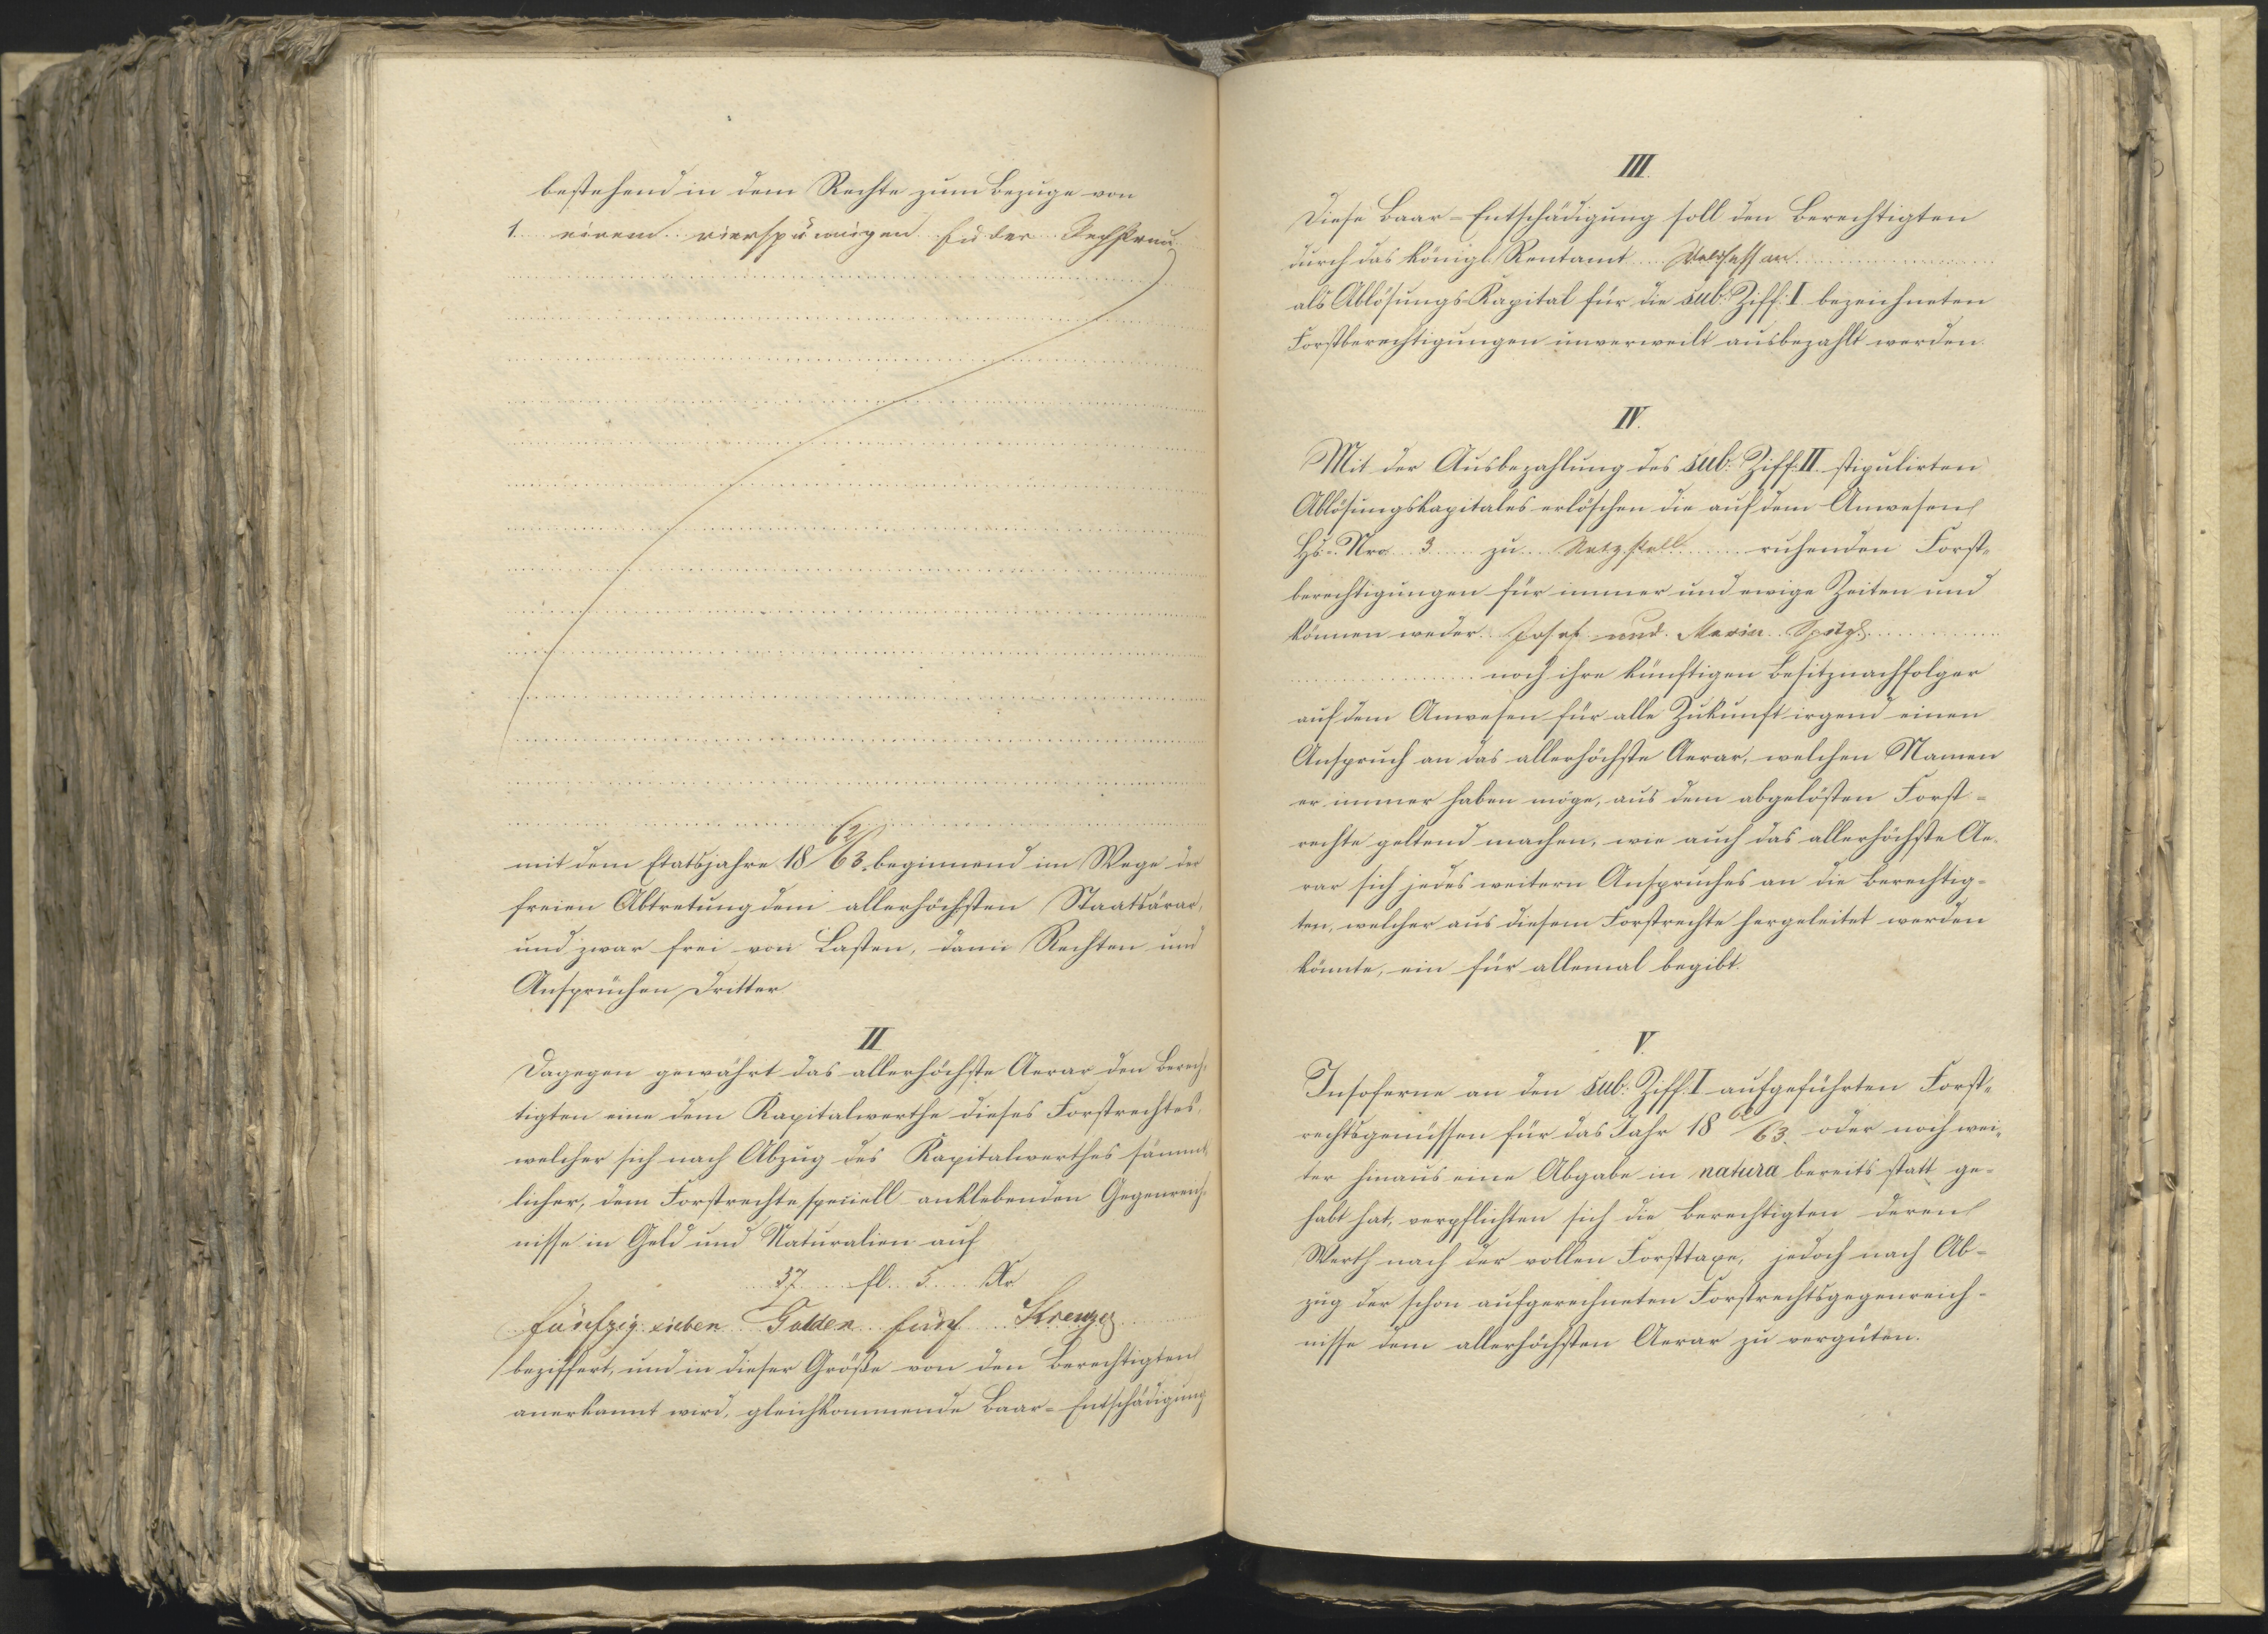 bestehend in dem Rechte zum Bezuge von
1. einem vierspännigen Fuder Rechstreu
mit dem Etatsjahre 18 62/63 beginnend im Wege der
freien Abtretung dem allerhöchsten Staatsärar,
und zwar frei von Lasten, dann Rechten und
Ansprüchen Dritter
II
Dagegen gewährt das allerhöchste Aerar den Berech-
tigten eine dem Kapitalwerthe dieses Forstrechtes,
welcher sich nach Abzug des Kapitalwerthes sämmt-
licher, dem Forstrechte speciell anklebenden Gegenreich-
nisse in Geld und Naturalien auf
57 fl. 5 Kr
fünfzig sieben Gulden fünf Kreuzer
beziffert, und in dieser Größe von den Berechtigten
anerkannt wird, gleichkommende Baar-Entschädigung
III.
Diese Baar-Entschädigung soll den Berechtigten
durch das königl. Rentamt Waldsassen
als Ablösungs-Kapital für die sub. Ziff: I bezeichneten
Forstberechtigungen unverweilt ausbezahlt werden.
IV.
Mit der Ausbezahlung des sub. Ziff: II stipulirten
Ablösungskapitales erlöschen die auf dem Anwesen
Hs. Nro 3 zu Netzstall ruhenden Forst-
berechtigungen für immer und ewige Zeiten und
können weder Josef und Maria
noch ihre künftigen Besitznachfolger
auf dem Anwesen für alle Zukunft irgend einen
Anspruch an das allerhöchste Aerar, welchen Namen
er immer haben möge, aus dem abgelösten Forst-
rechte geltend machen, wie auch das allerhöchste Ae-
rar sich jedes weitern Anspruches an die Berechtig-
ten, welcher aus diesem Forstrechte hergeleitet werden
könnte, ein für allemal begibt.
V.
Insoferne an den sub. Ziff: I aufgeführten Forst-
rechtsgenüssen für das Jahr 18 62/63 oder noch wei-
ter hinaus eine Abgabe in natura bereits statt ge-
habt hat, verpflichten sich die Berechtigten deren
Werth nach der vollen Forsttaxe, jedoch nach Ab-
zug der schon aufgerechneten Forstrechtsgegenreich-
nisse dem allerhöchsten Aerar zu vergüten.